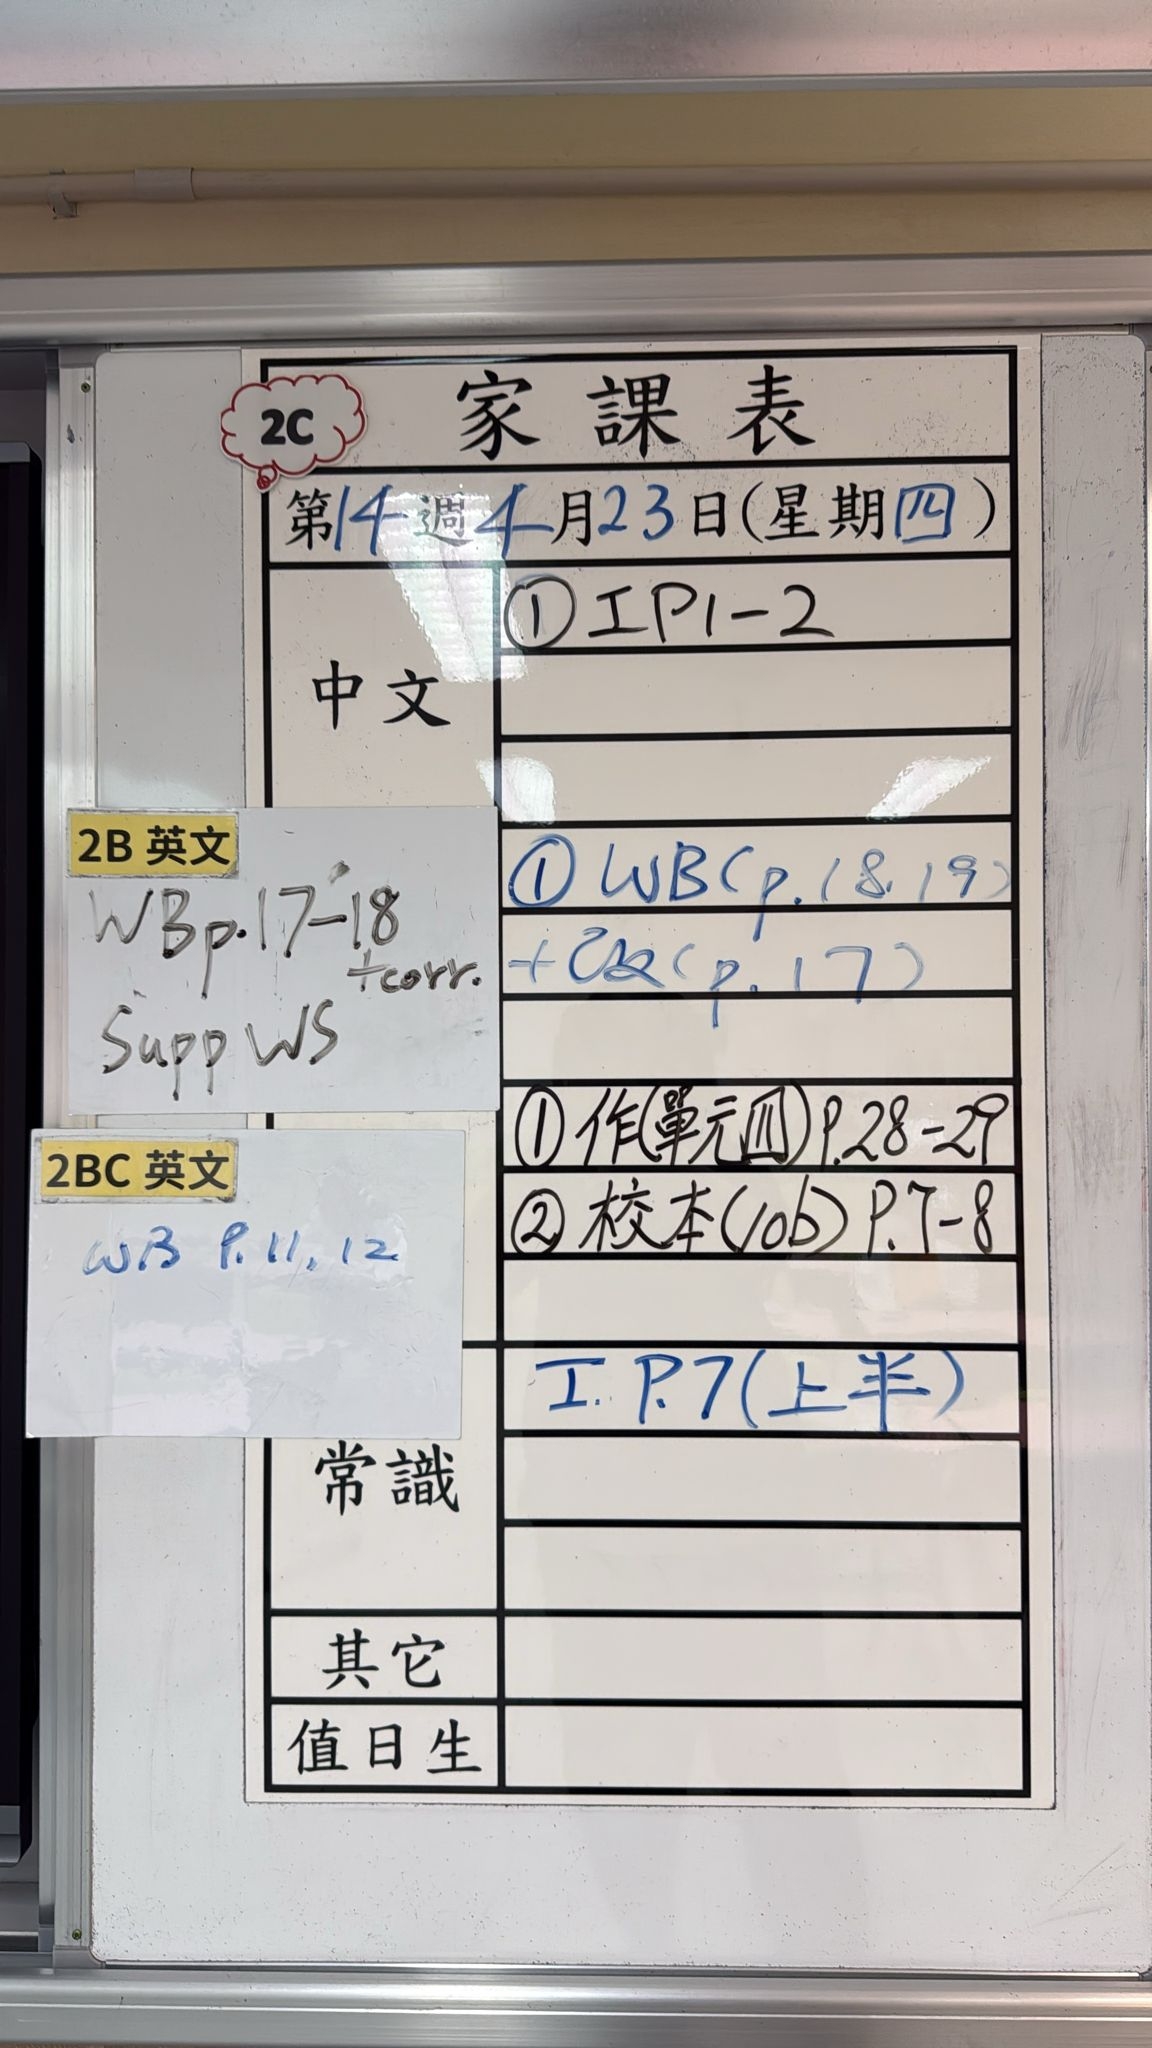 2C
家課表
第14週4月23日(星期四)
中文
①工P1-2
2B 英文
WBp.17-18
+corr.
Supp WS
① WB(p.18,19)
+改(p.17)
2BC 英文
WB P.11, 12
①作(單元四)P.28-29
②校本(10b)P.7-8
常識
工.P.7(上半)
其它
值日生